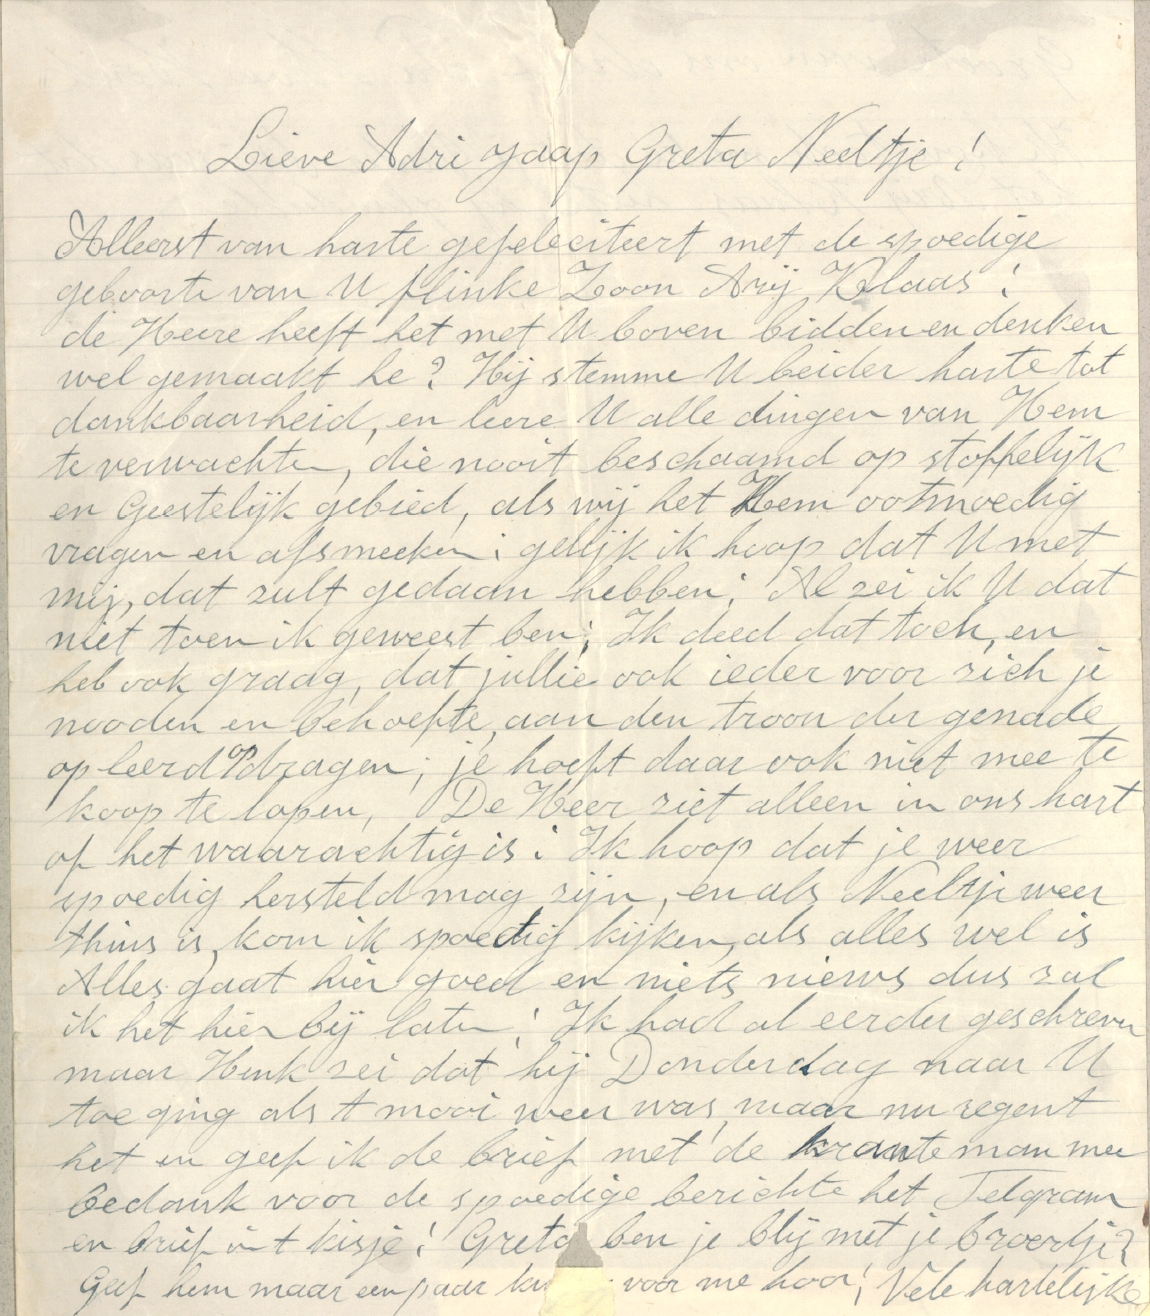 Lieve Adri Jaap Greta Neeltje !
Alleerst van harte gefeleciteert met de spoedige
geboorte van U flinke Zoon Arij Klaas !
de Heere heeft het met U boven bidden en denken
wel gemaakt he? Hij stemme U beider harte tot
dankbaarheid, en leere U alle dingen van Hem
te verwachten, die nooit beschaamd op stoffelijk
en Geestelijk gebied, als wij het Hem ootmoedig
vragen en afsmeeken; gelijk ik hoop dat U met
mij, dat zult gedaan hebben; Al zei ik U dat
niet toen ik geweest ben; Ik deed dat toch, en
heb ook graag, dat jullie ook ieder voor zich je
nooden en behoefte, aan den troon der genade
op leerd op dragen; je hoeft daar ook niet mee te
koop te lopen, De Heer ziet alleen in ons hart
of het waarachtig is; Ik hoop dat je weer
spoedig hersteld mag zijn, en als Neeltje weer
thuis is, kom ik spoedig kijken, als alles wel is
Alles gaat hier goed en niets nieuws dus zal
ik het hier bij laten ! Ik had al eerder geschreven
maar Henk zei dat hij Donderdag naar U
toe ging als t mooi weer was, maar nu regent
het en geef ik de brief met de krante man mee
bedank voor de spoedige berichte het Telgram
en brief in t kisje ! Greta ben je blij met je broertje?
Geef hem maar een paar voor me hoor ! Vele hartelijke